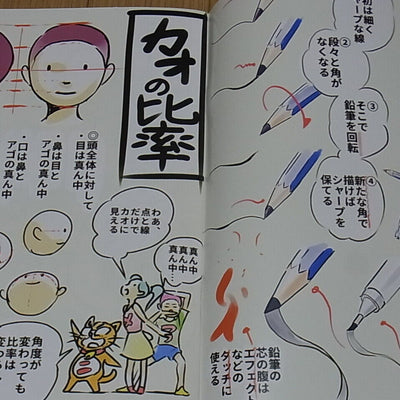 初は細く
シャープな線
②
段々と角が
なくなる
③
そこで
鉛筆を回転
④
新たな角で
描けば
シャープを
保てる
鉛筆の
芯の腹は
エフェクト
などの
タッチに
使える
カオの比率
◎頭全体に対して
・目は真ん中
・鼻は目と
アゴの真ん中
・口は鼻と
アゴの真ん中
わぁ、
点と線
だけで
カオに
見える
真ん中
真ん中…
角度が
変わっても
比率は
変わる